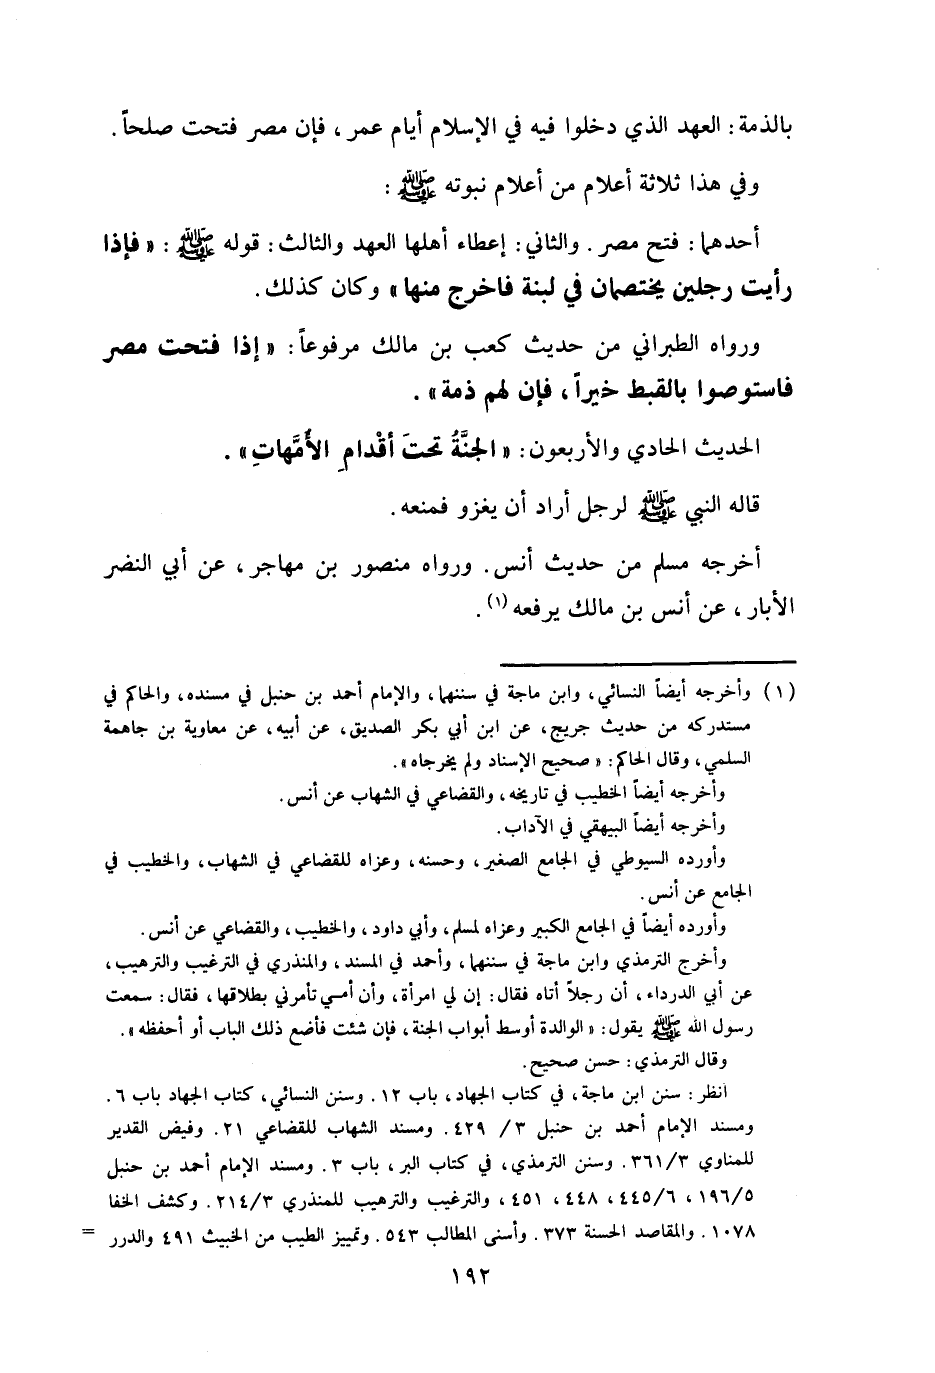 بالذمة : العهد الذي دخلوا فيه في الإسلام أيام عمر ، فإن مصر فتحت صلحاً .
وفي هذا ثلاثة أعلام من أعلام نبوته ﷺ :
أحدهما : فتح مصر . والثاني : إعطاء أهلها العهد والثالث : قوله ﷺ : « فإذا
رأيت رجلين يختصمان في لبنة فاخرج منها » وكان كذلك .
ورواه الطبراني من حديث كعب بن مالك مرفوعاً : « إذا فتحت مصر
فاستوصوا بالقبط خيراً ، فإن لهم ذمة » .
الحديث الحادي والأربعون : « الجنَّةُ تحتَ أقْدامِ الأُمَّهاتِ » .
قاله النبي ﷺ لرجل أراد أن يغزو فمنعه .
أخرجه مسلم من حديث أنس . ورواه منصور بن مهاجر ، عن أبي النضر
الأبار ، عن أنس بن مالك يرفعه (١) .
(١) وأخرجه أيضاً النسائي ، وابن ماجة في سننهما ، والإمام أحمد بن حنبل في مسنده ، والحاكم في
مستدركه من حديث جريج ، عن ابن أبي بكر الصديق ، عن أبيه ، عن معاوية بن جاهمة
السلمي ، وقال الحاكم : « صحيح الإسناد ولم يخرجاه » .
وأخرجه أيضاً الخطيب في تاريخه ، والقضاعي في الشهاب عن أنس .
وأخرجه أيضاً البيهقي في الآداب .
وأورده السيوطي في الجامع الصغير ، وحسنه ، وعزاه للقضاعي في الشهاب ، والخطيب في
الجامع عن أنس .
وأورده أيضاً في الجامع الكبير وعزاه لمسلم ، وأبي داود ، والخطيب ، والقضاعي عن أنس .
وأخرج الترمذي وابن ماجة في سننهما ، وأحمد في المسند ، والمنذري في الترغيب والترهيب ،
عن أبي الدرداء ، أن رجلاً أتاه فقال : إن لي امرأة ، وأن أمي تأمرني بطلاقها ، فقال : سمعت
رسول الله ﷺ يقول : « الوالدة أوسط أبواب الجنة ، فإن شئت فأضع ذلك الباب أو أحفظه » .
وقال الترمذي : حسن صحيح .
انظر : سنن ابن ماجة ، في كتاب الجهاد ، باب ١٢ . وسنن النسائي ، كتاب الجهاد باب ٦ .
ومسند الإمام أحمد بن حنبل ٣/ ٤٢٩ . ومسند الشهاب للقضاعي ٢١ . وفيض القدير
للمناوي ٣/٣٦١ . وسنن الترمذي ، في كتاب البر ، باب ٣ . ومسند الإمام أحمد بن حنبل
٥/١٩٦ ، ٦/٤٤٥ ، ٤٤٨ ، ٤٥١ ، والترغيب والترهيب للمنذري ٣/٢١٤ . وكشف الخفا
١٠٧٨ . والمقاصد الحسنة ٣٧٣ . وأسنى المطالب ٥٤٣ . وتمييز الطيب من الخبيث ٤٩١ والدرر =
١٩٢